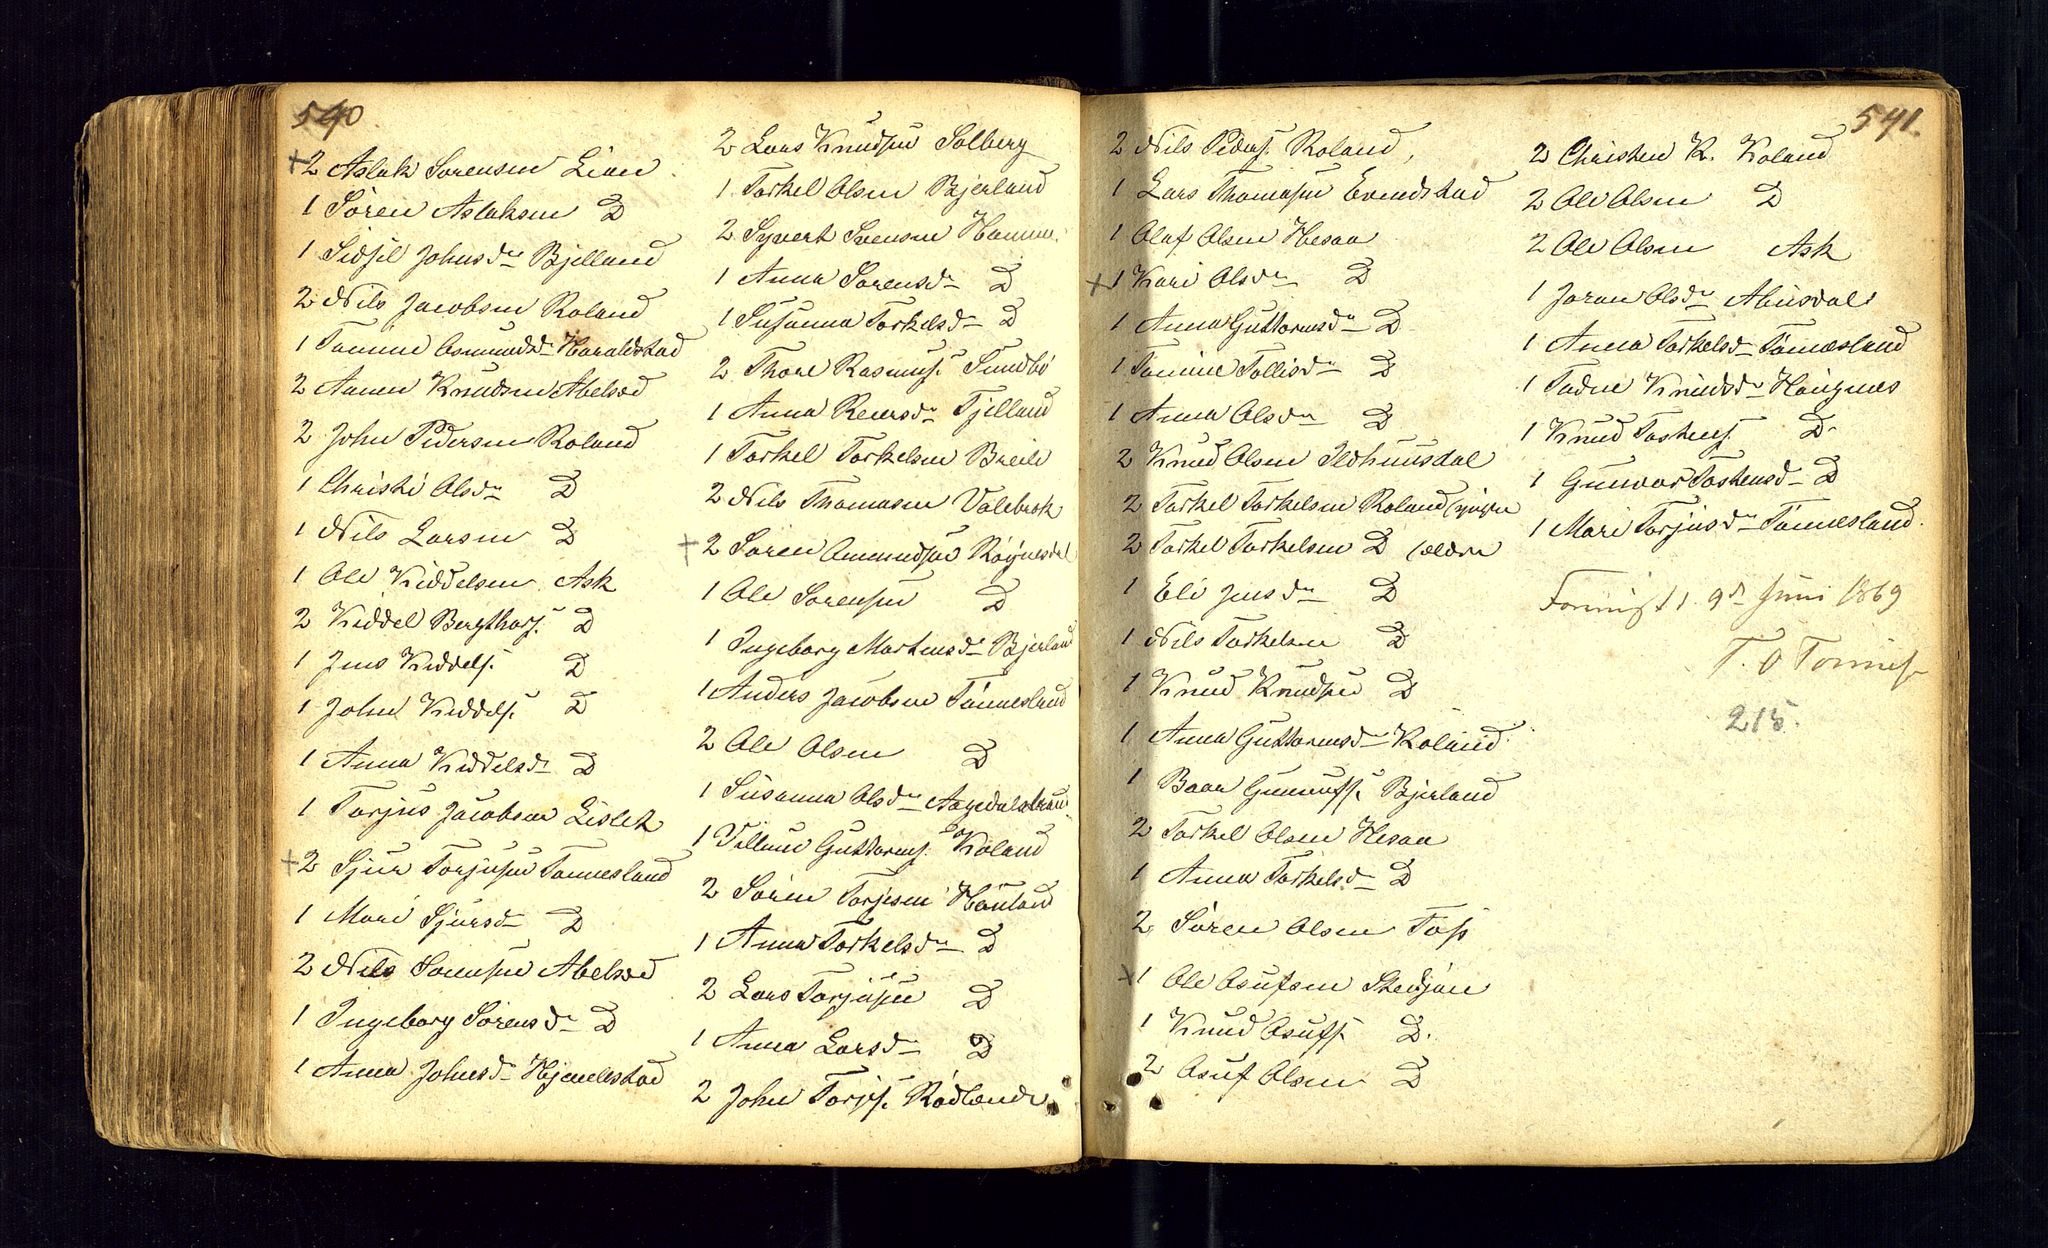 540
+2 Aslak Sørensen Lien
1 Søren Aslaksen D
1 Sidsil Johnsdr Bjelland
2 Nils Jacobsen Roland
1 Tomine Osmundsdr Haraldstad
2 Aanen Knudsen Abelsæd
2 John Pedersen Roland
1 Christi Olsdr D
1 Nils Larsen D
1 Ole Kiddelsen Ask
2 Kiddel Bergthors. D
1 Jens Kiddels. D
1 John Kiddels. D
1 Anna Kiddelsdr D
1 Torjus Jacobsen Lislek
+2 Sjur Torjusen Tønnesland
1 Mari Sjursdr D
2 Nils Sørensen Abelsæd
1 Ingeborg Sørensdr D
1 Anna Johnsdr Hjemlestad
2 Lars Knudsen Solberg
1 Torkel Olsen Bjerland
2 Syvert Svensen Homme
1 Anna Sørensdr D
1 Susanna Torkelsdr D
2 Thore Rasmus. Sundbø
1 Anna Reiersdr Fjelland
1 Torkel Torkelsen Breili
2 Nils Thomasen Valebrok
+2 Søren Omundsen Røynesdal
1 Ole Sørensen D
1 Ingeborg Mortensdr Bjerland
1 Anders Jacobsen Tønnesland
2 Ole Olsen D
1 Susanna Olsdr
1 Villum Guttorms. Koland
2 Søren Torjesen Hønland
1 Anna Torkelsdr D
2 Lars Torjusen D
1 Anna Larsdr D
2 John Torjs. Rødlende
541.
2 Nils Peders. Roland,
1 Lars Thomasen Evendstad
1 Olaf Olsen Hesaa
+1 Kari Olsdr D
1 Anna Guttormsdr D
1 Tomine Tollisdr D
1 Anna Olsdr D
2 Knud Olsen Ildhuusdal
2 Torkel Torkelsen Roland (yngre
2 Torkel Torkelsen D (ældre
1 Eli Jensdr D
1 Nils Torkelsen D
1 Knud Knudsen D
1 Anna Guttormsdr Koland
1 Baar Gunnufs. Bjerland
2 Torkel Olsen Hesaa
1 Anna Torkelsdr D
2 Søren Olsen Foss
+1 Ole Osufsen Stedjan
1 Knud Osufs. D.
2 Osuf Olsen D
2 Christen K. Koland
2 Ole Olsen D
2 Ole Olsen Ask
1 Joran Olsdr Abusdal
1 Anna Torkelsdr Tønnesland
1 Tadne Knudsdr Haugnes
1 Knud Tostens. D.
1 Gunvor Tostensdr D
1 Mari Torjusdr Tønnesland.
9d Juni 1869
T. O Tønnes
215.